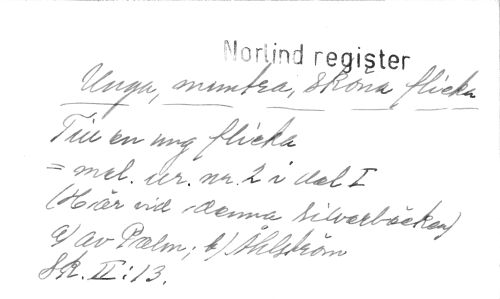 Norlind register
Unga, muntra, sköna flicka
Till en ung flicka
= mel. ur. nr. 2 i del I
(Här vid denna silverbäcken)
a) av Palm; b) Åhlström
Sk. II:13.